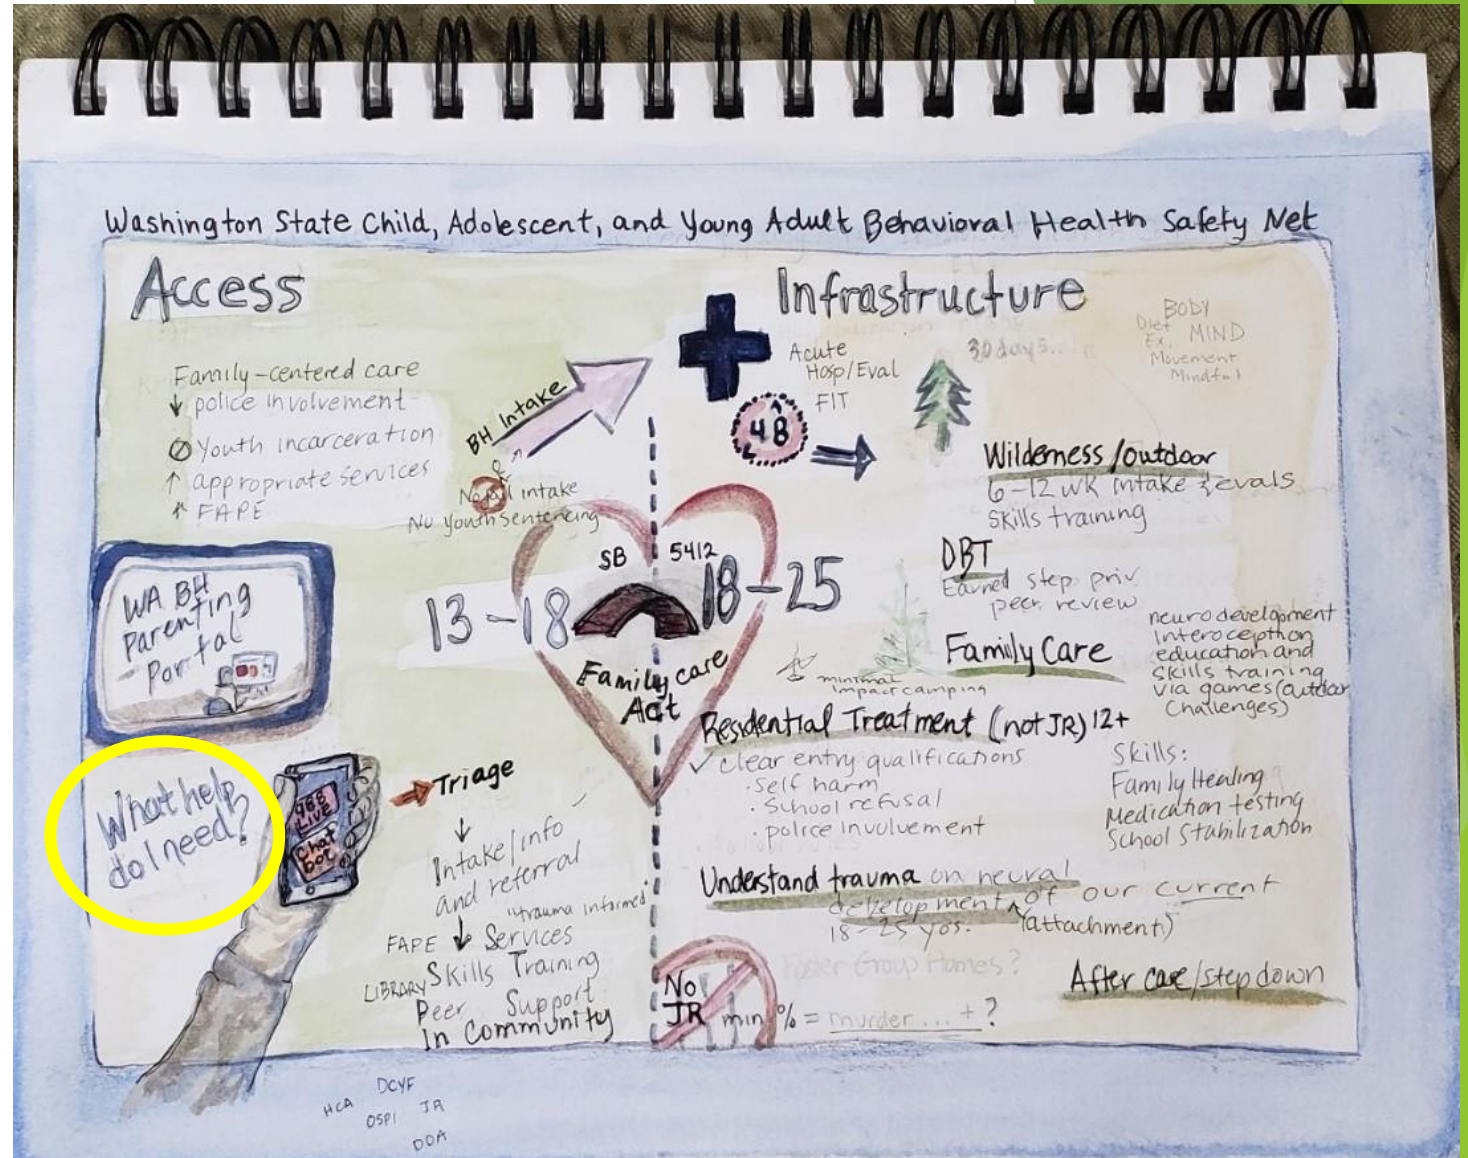 Washington State Child, Adolescent, and Young Adult Behavioral Health Safety Net
Access
Family-centered care
↓ police involvement
Ø Youth incarceration
↑ appropriate services
↑ FAPE
BH Intake
No intake
No Youth Sentencing
WA BH
Parenting
Portal
What help
do I need?
988
LIVE
Chat
bot
Triage
Intake/info
and referral
"trauma informed"
FAPE ↓ Services
LIBRARY Skills Training
Peer Support
In Community
SB 5412
13-18 18-25
Family care
Act
Infrastructure
Acute
Hosp/Eval
FIT
48
30 days
BODY
Diet MIND
Ex.
Movement
Mindful
Wilderness/outdoor
6-12 wk intake & evals
Skills training
DBT
Earned step priv.
peer review
Family Care
neurodevelopment
interoception
education and
skills training
via games (outdoor
Challenges)
minimal
impact camping
Residential Treatment (not JR) 12+
✓ clear entry qualifications
· Self harm
· School refusal
· police involvement
Skills:
Family Healing
Medication testing
School Stabilization
Understand trauma on neural
development of our current
18-25 yos. (attachment)
Foster Group Homes?
After care/step down
No
JR
min % = murder... + ?
DCYF
HCA
OSPI JR
DOA